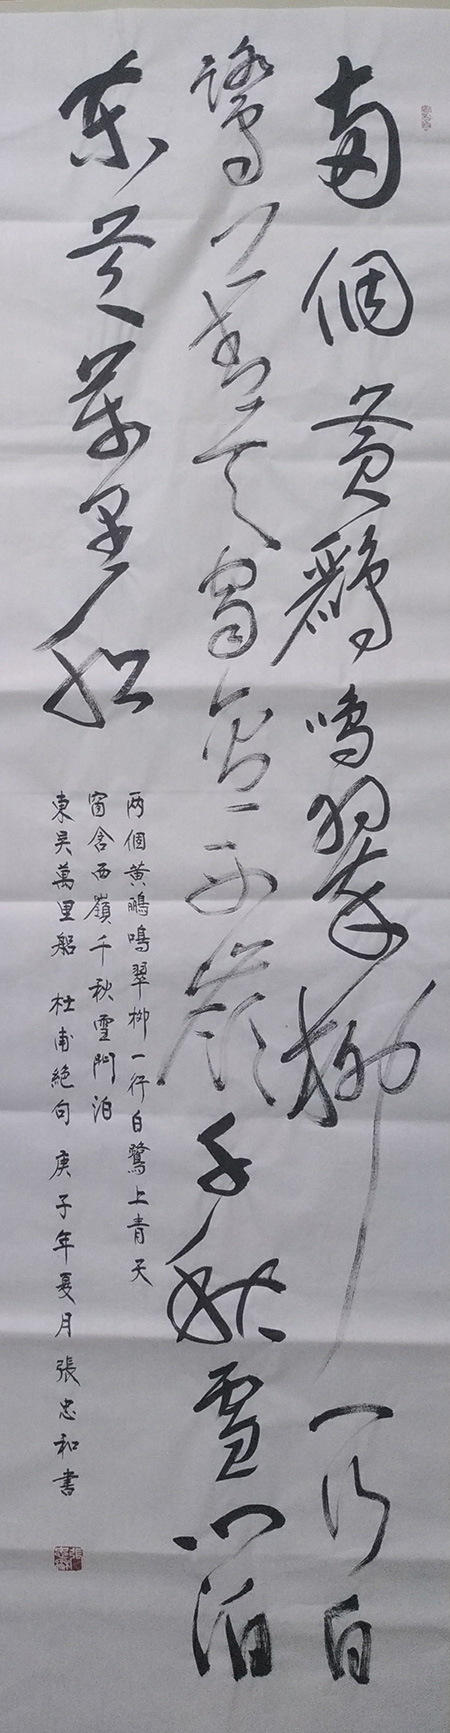 两個黄鸝鳴翠柳一行白
鷺上青天窗含西嶺千秋雪门泊
东吴万里船
两個黄鸝鳴翠柳一行白鷺上青天
窗含西嶺千秋雪门泊
東吴萬里船 杜甫絕句 庚子年夏月張忠和書